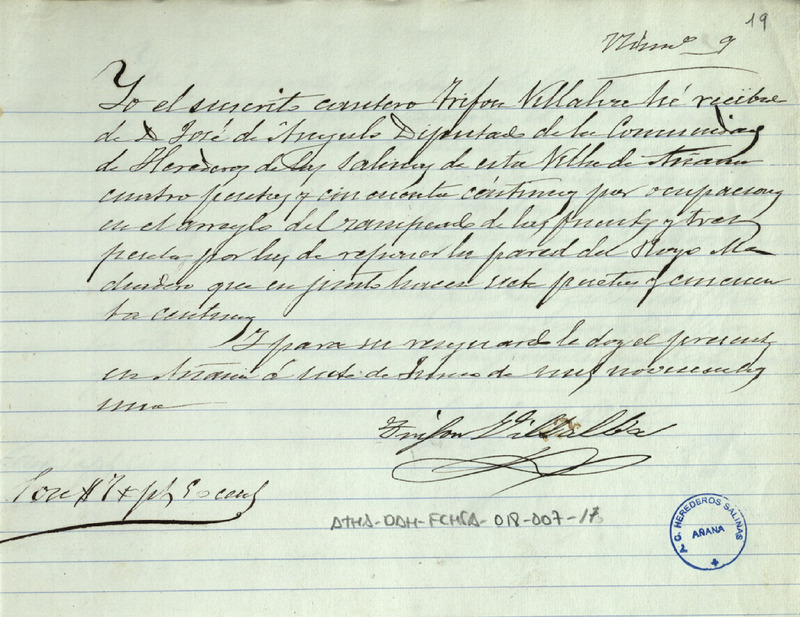 19
Núm.º 9
Yo el suscrito cantero Trifon Villalba hé recibido
de D José de Angulo Diputado de la Comunidad
de Herederos de las Salinas de esta Villa de Añana
cuatro pesetas y cincuenta céntimos por ocupaciones
en el arreglo del rampeado de las fuentes y tres
pesetas por las de reparar la pared del Royo Ma
duradero que en junto hacen siete pesetas y cincuen
ta centimos
Y para su resguardo le doy el presente
en Añana á siete de de mil novecientos
uno
Trifon Villalba
Son 7
ATHA-DAH-FCHSA-018-007-17
C. HEREDEROS SALINAS
AÑANA